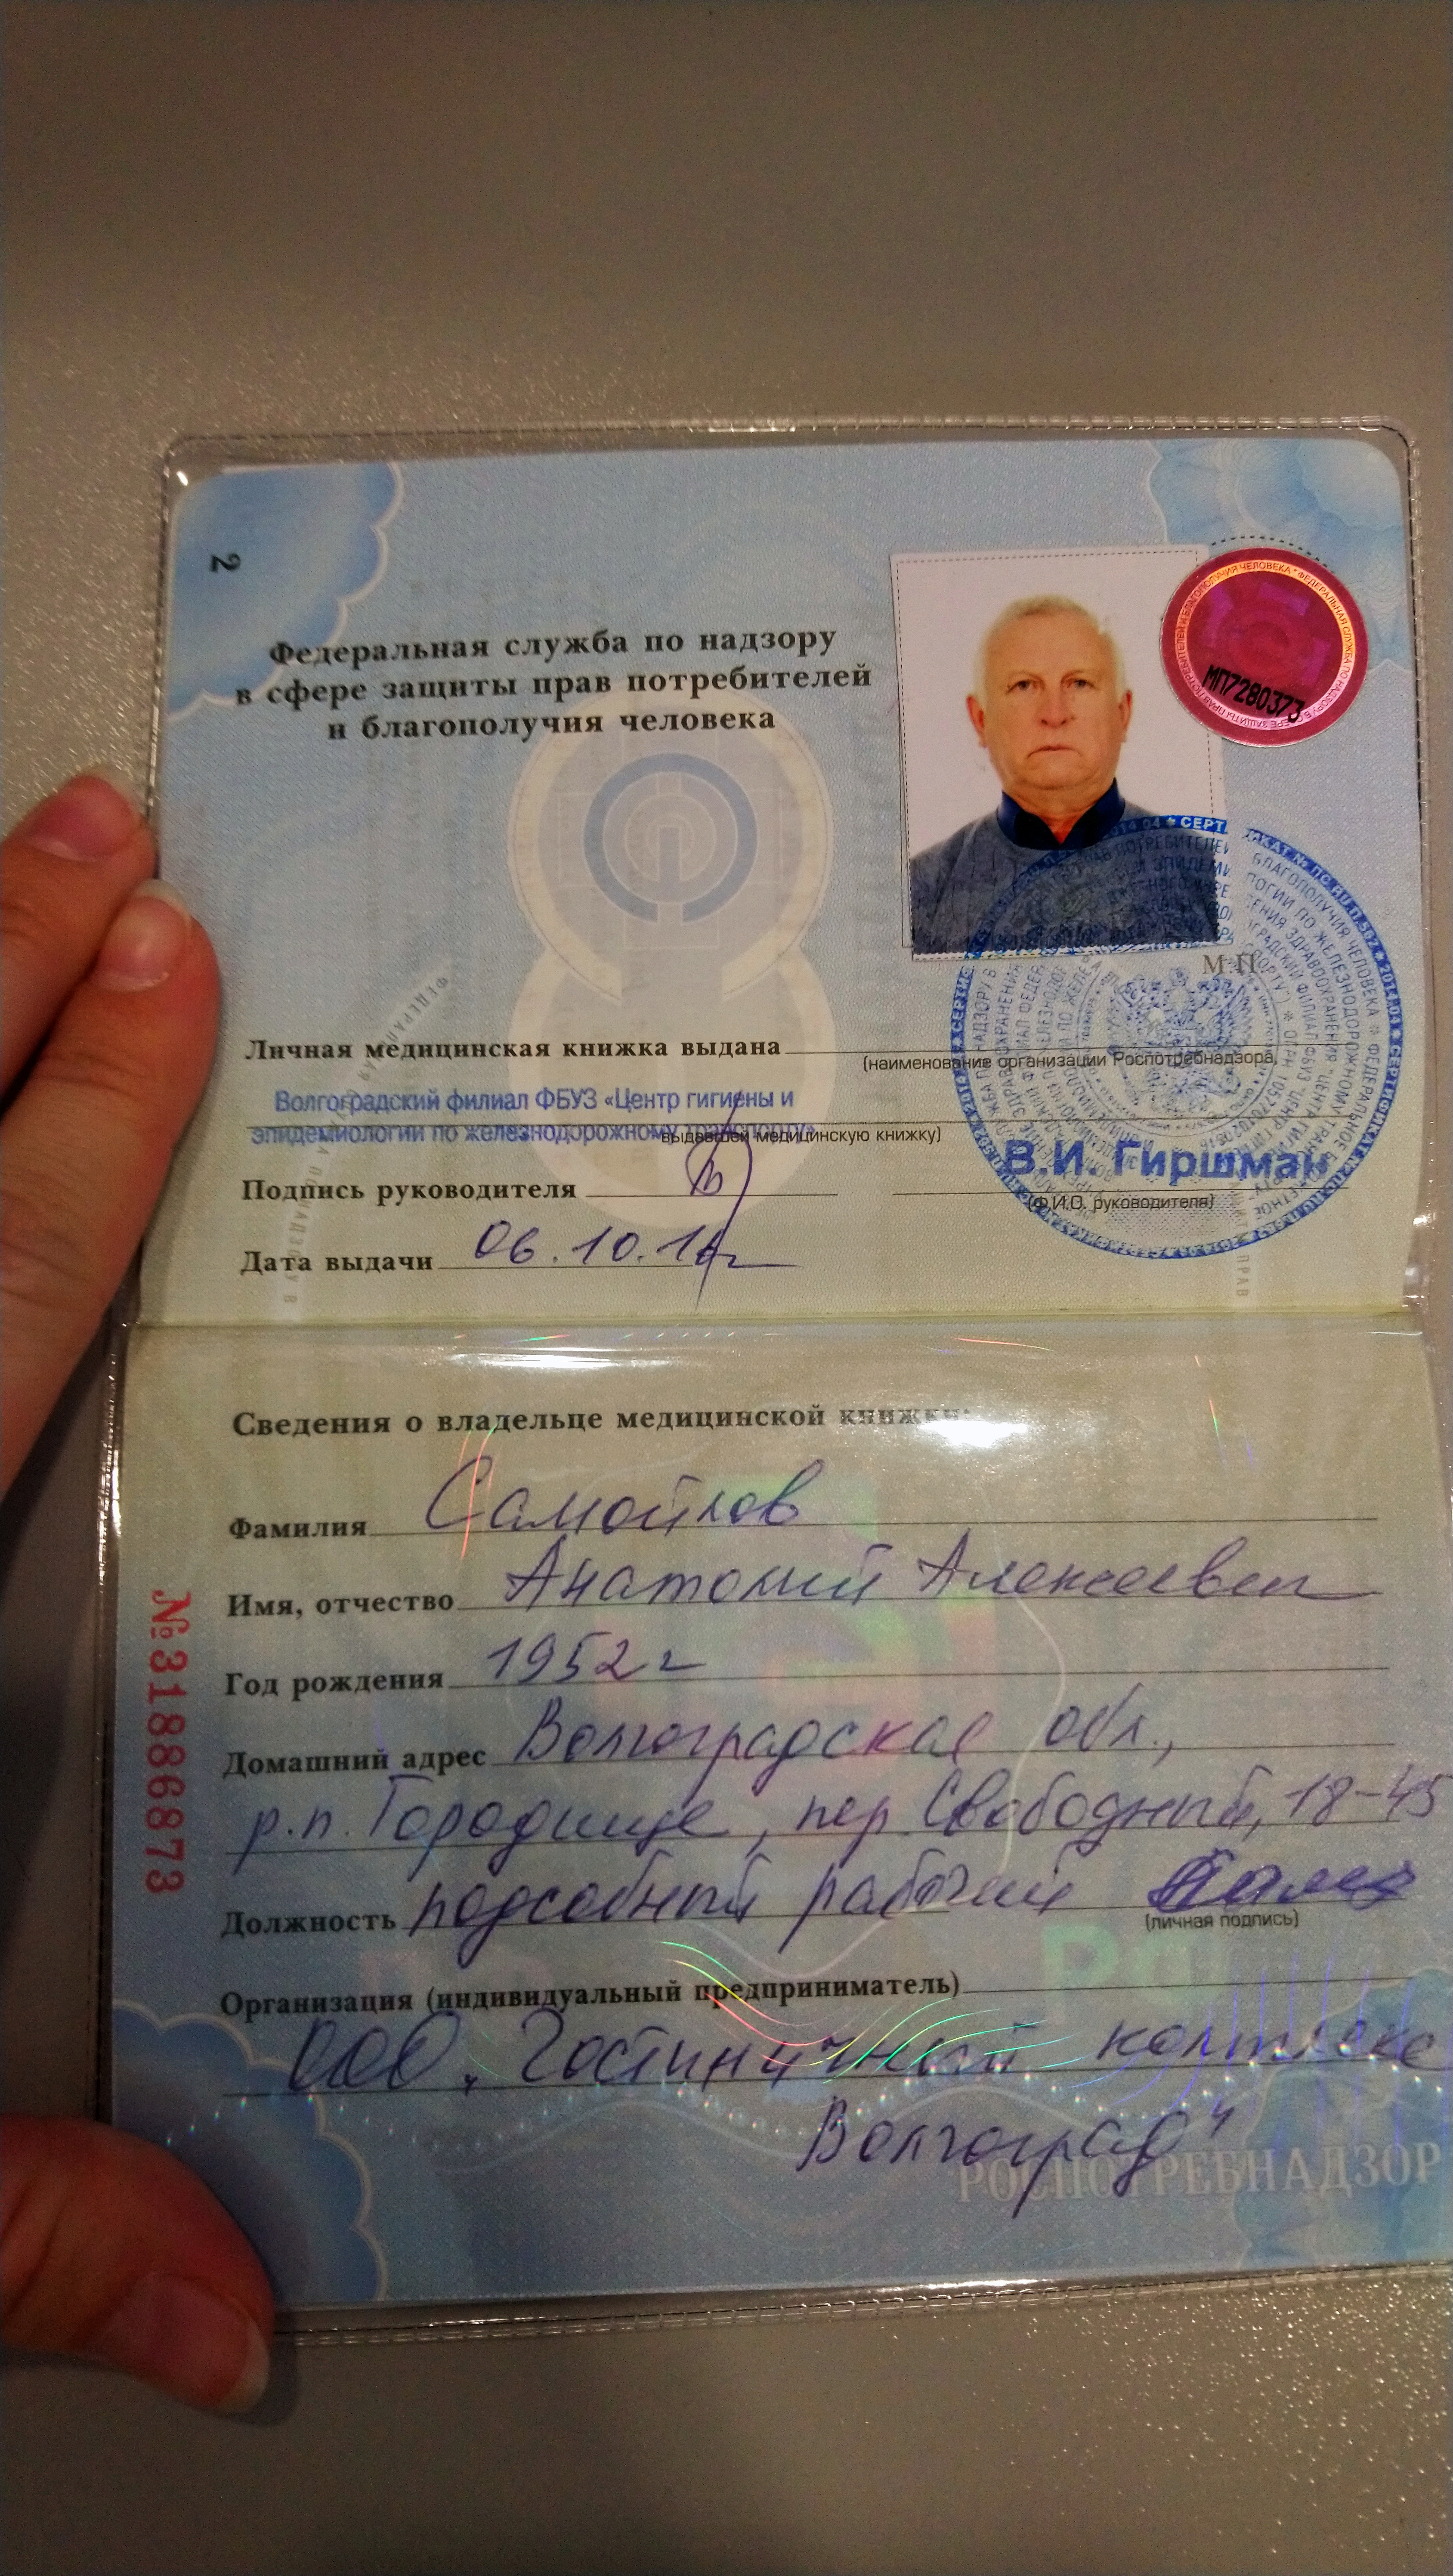 2
Федеральная служба по надзору
в сфере защиты прав потребителей
и благополучия человека
МП7280373
М.П.
Личная медицинская книжка выдана
(наименование организации Роспотребнадзора,
Волгоградский филиал ФБУЗ «Центр гигиены и
эпидемиологии по железнодорожному транспорту»
выдавшей медицинскую книжку)
В.И. Гиршман
Подпись руководителя
(Ф.И.О. руководителя)
Дата выдачи 06.10.16г
Сведения о владельце медицинской книжки:
Фамилия Самойлов
Имя, отчество Анатолий Алексеевич
Год рождения 1952г
Домашний адрес Волгоградская обл.,
р.п. Городище, пер. Свободный, 18-45
Должность подсобный рабочий
(личная подпись)
Организация (индивидуальный предприниматель)
ООО "Гостиничный комплекс
Волгоград"
РОСПОТРЕБНАДЗОР
№31886873